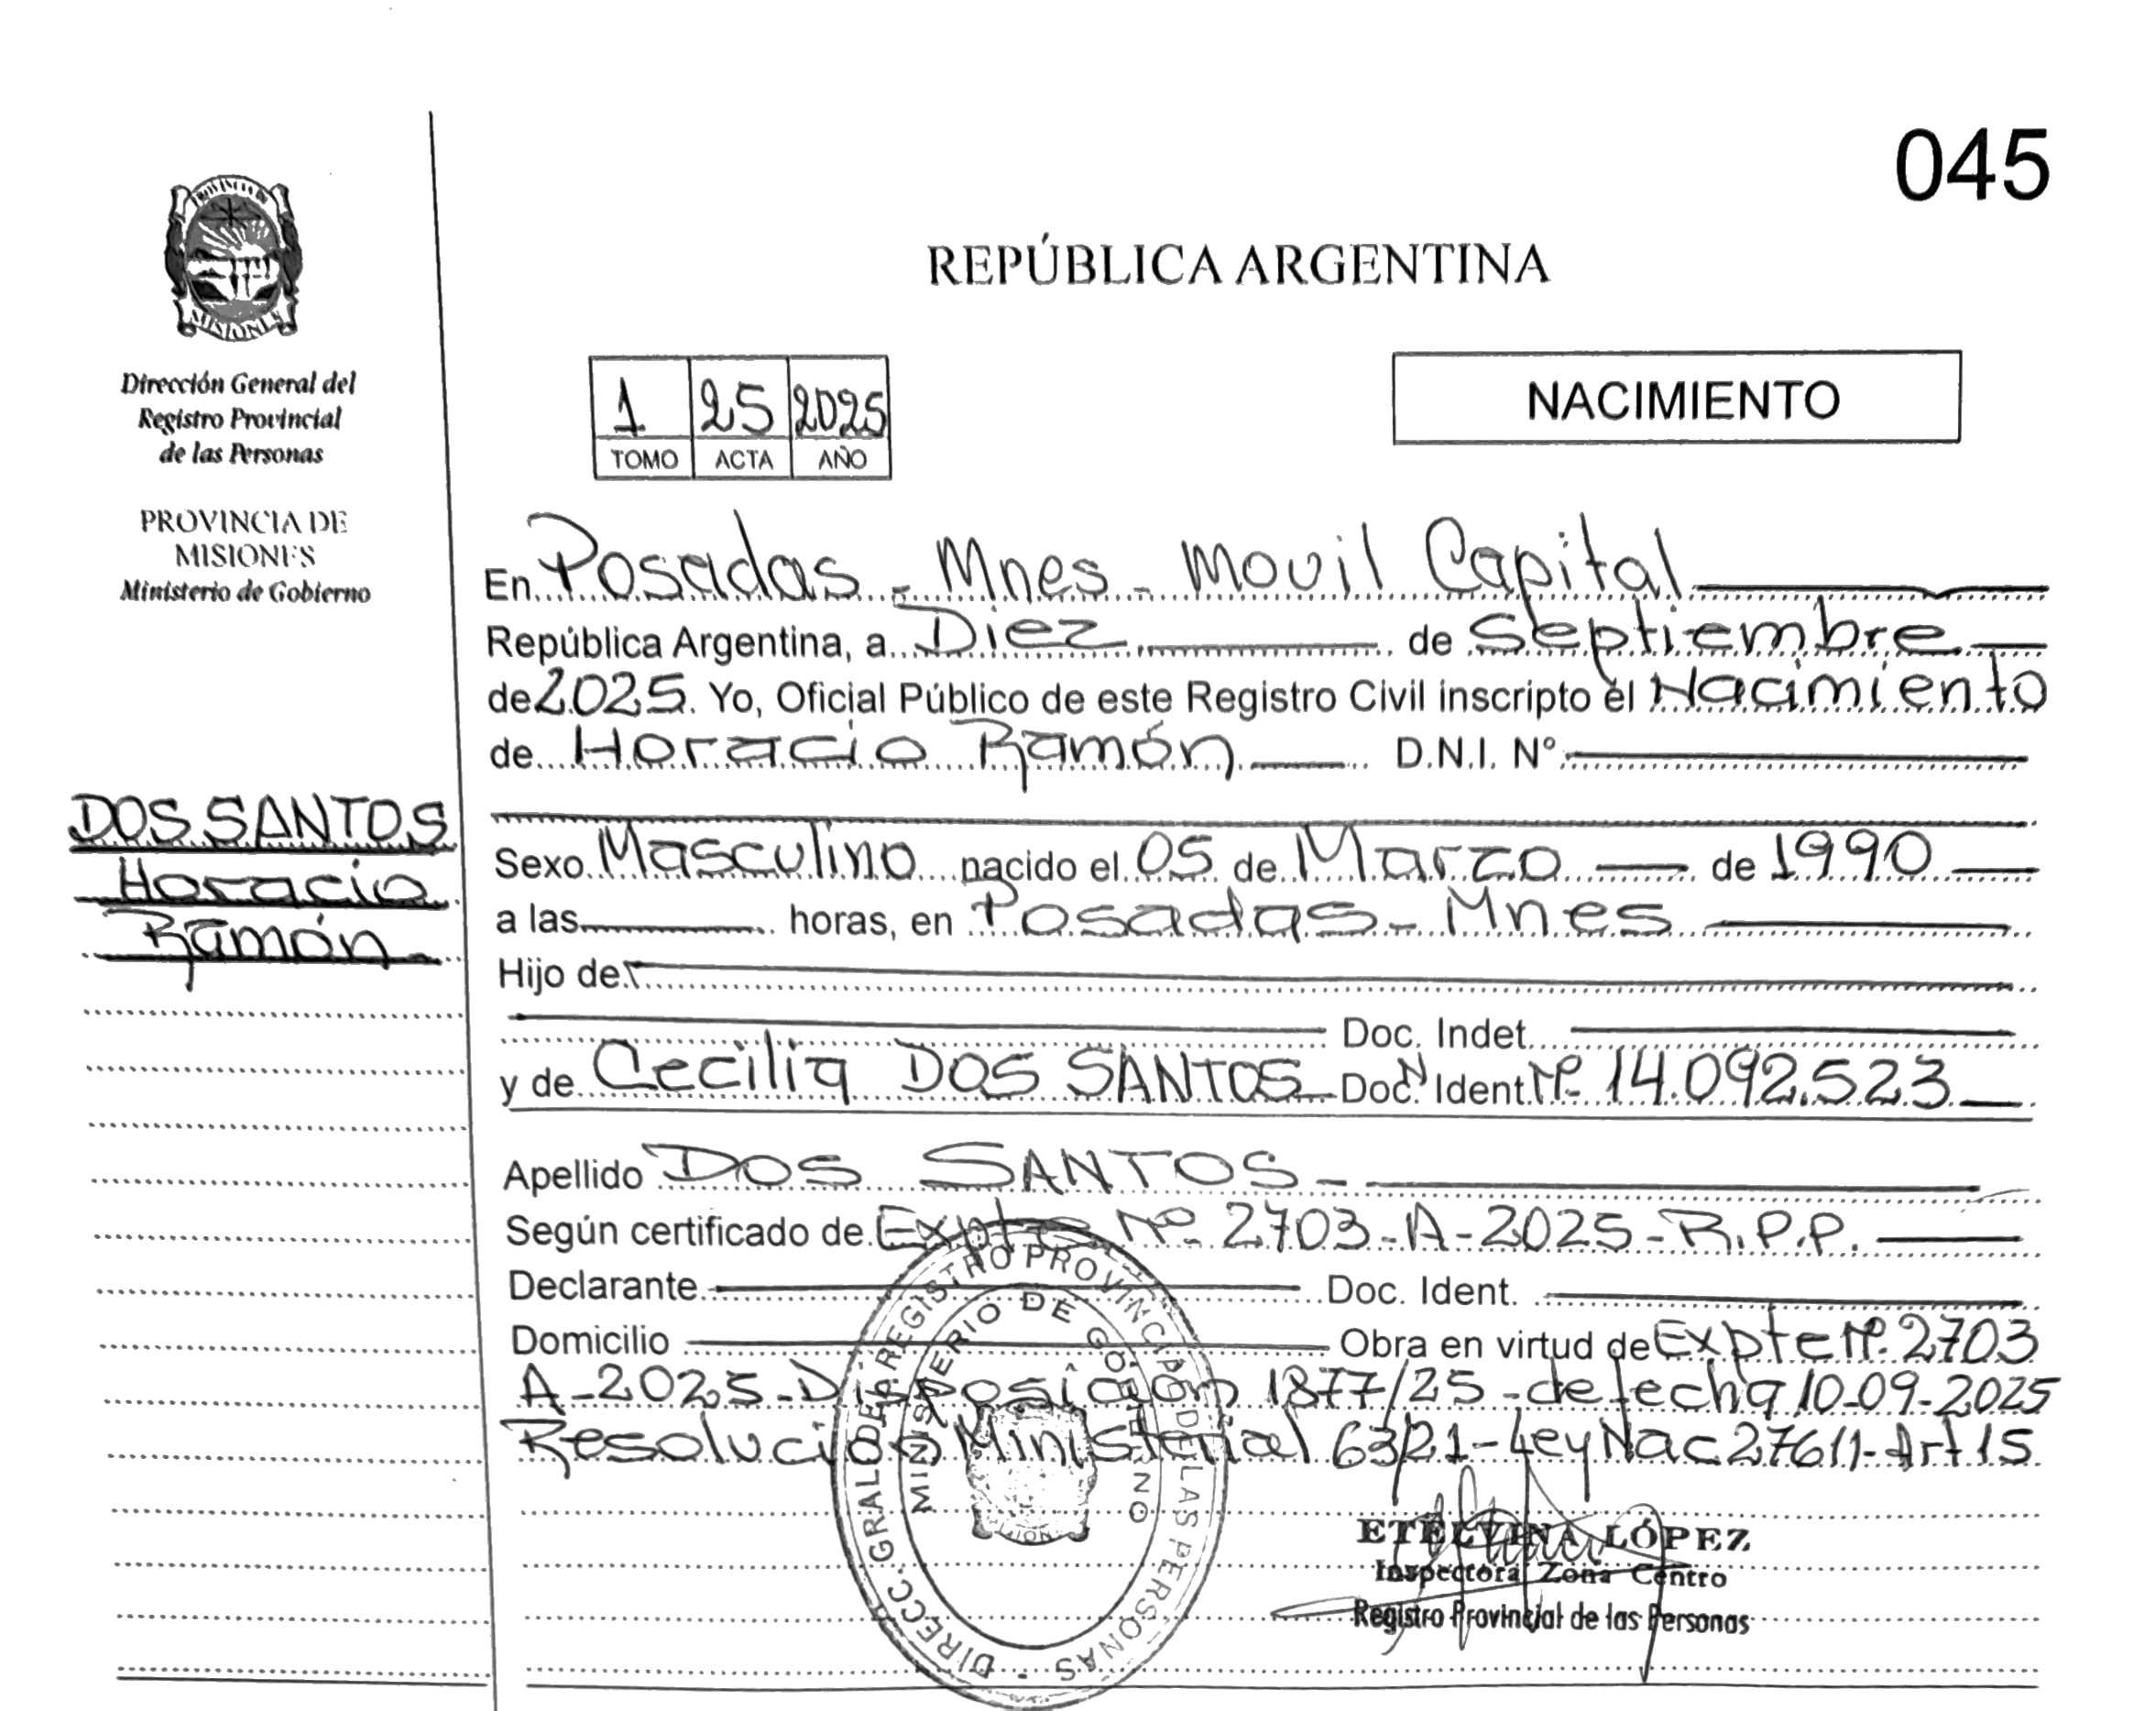 045
PROVINCIA DE
MISIONES
Dirección General del
Registro Provincial
de las Personas
PROVINCIA DE
MISIONES
Ministerio de Gobierno
DOS SANTOS
Horacio
Ramón
REPÚBLICA ARGENTINA
1 25 2025
TOMO ACTA AÑO
NACIMIENTO
En Posadas - Mnes - Movil Capital
República Argentina, a Diez de Septiembre
de 2025. Yo, Oficial Público de este Registro Civil inscripto el Nacimiento
de Horacio Ramón D.N.I. Nº
Sexo Masculino nacido el 05 de Marzo de 1990
a las horas, en Posadas - Mnes
Hijo de
Doc. Indet.
y de Cecilia DOS SANTOS - Doc. N Ident. Nº 14.092.523
Apellido DOS SANTOS -
Según certificado de Expte Nº 2703-A-2025-R.P.P.
Declarante Doc. Ident.
Domicilio Obra en virtud de Expte Nº 2703
A-2025-Disposición 1877/25-de fecha 10-09-2025
Resolución Ministerial 63/21-Ley Nac 27611-Art 15
DIRECC. GRAL. DEL REGISTRO PROVINCIAL DE LAS PERSONAS
MINISTERIO DE GOBIERNO
ETELVINA LÓPEZ
Inspectora Zona Centro
Registro Provincial de las Personas